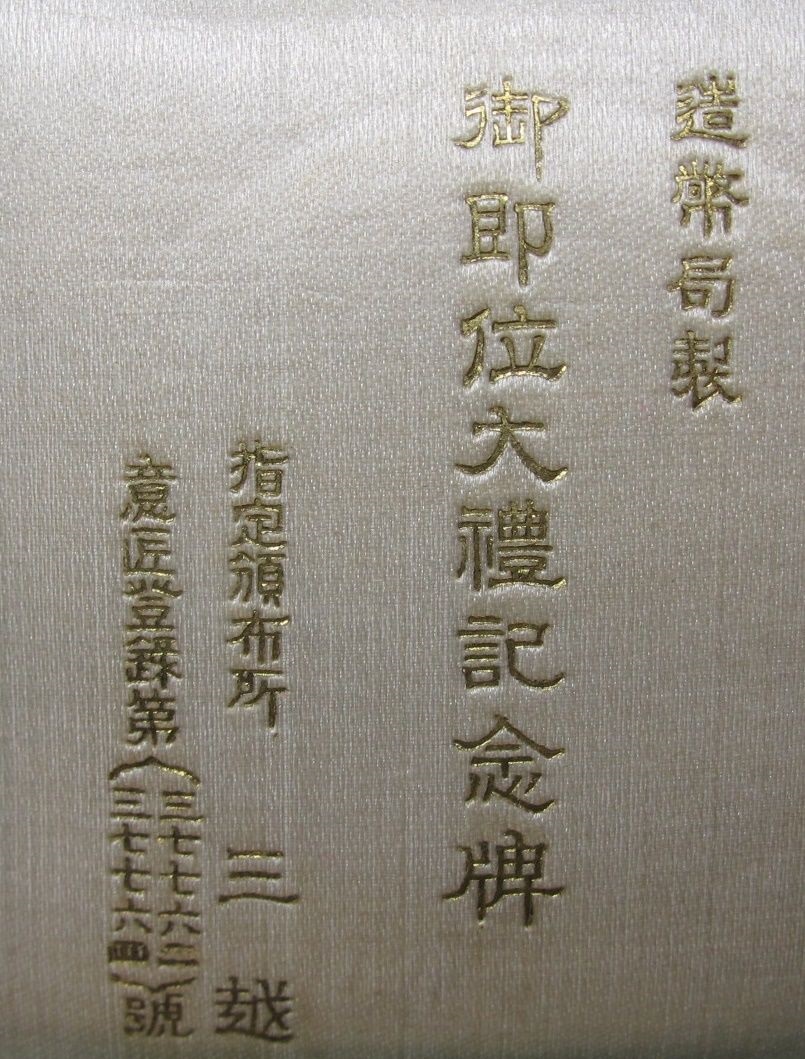 造幣局製
御即位大禮記念牌
指定頒布所 三越
意匠登錄第(三七七六二 三七七六四)號